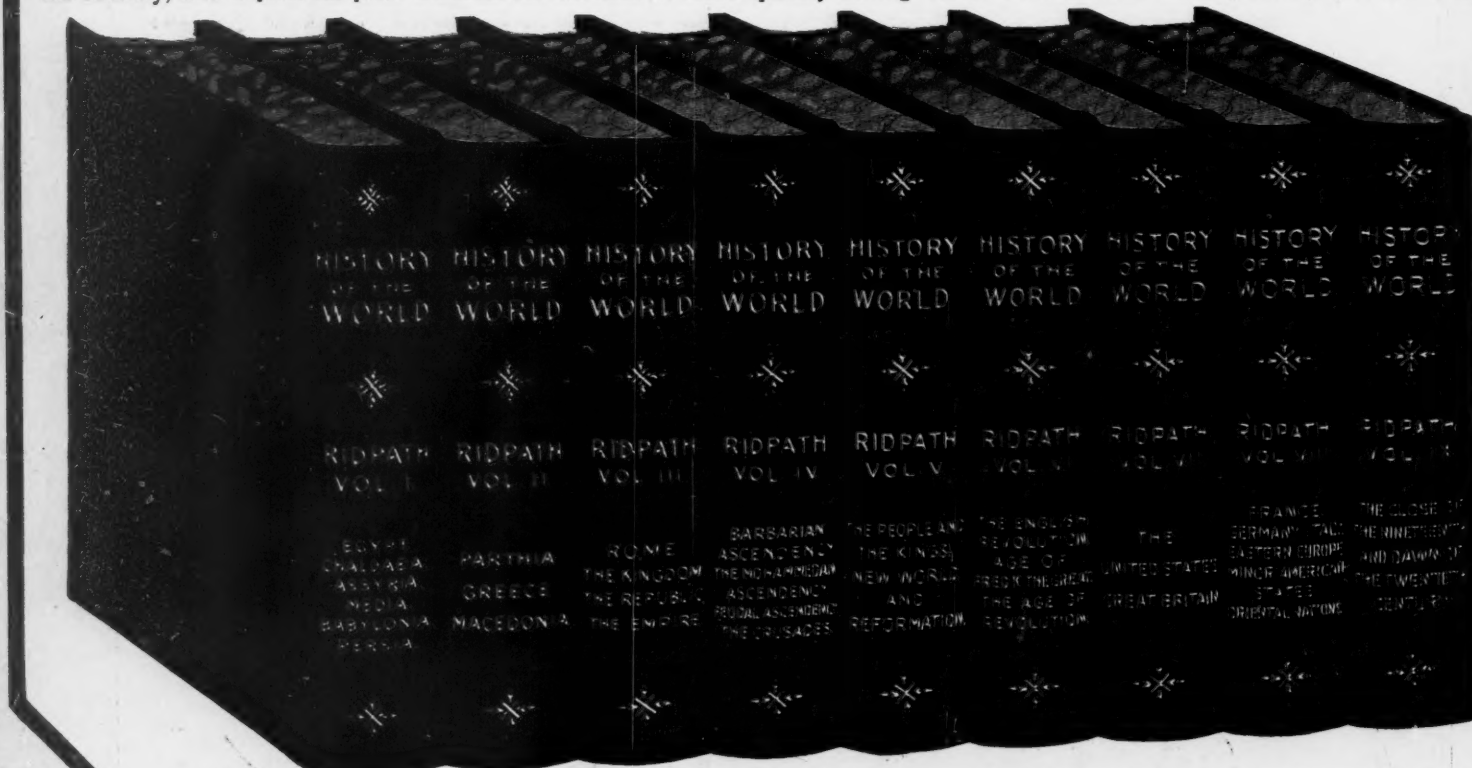 HISTORY
OF THE
WORLD
RIDPATH
VOL I
EGYPT
CHALDAEA
ASSYRIA
MEDIA
BABYLONIA
PERSIA
HISTORY
OF THE
WORLD
RIDPATH
VOL II
PARTHIA
GREECE
MACEDONIA
HISTORY
OF THE
WORLD
RIDPATH
VOL III
ROME
THE KINGDOM
THE REPUBLIC
THE EMPIRE
HISTORY
OF THE
WORLD
RIDPATH
VOL IV
BARBARIAN
ASCENDENCY
THE MOHAMMEDAN
ASCENDENCY
FEUDAL ASCENDENCY
THE CRUSADES
HISTORY
OF THE
WORLD
RIDPATH
VOL V
THE PEOPLE AND
THE KINGS
NEW WORLD
AND
REFORMATION
HISTORY
OF THE
WORLD
RIDPATH
VOL VI
THE ENGLISH
REVOLUTION
AGE OF
FRED'K THE GREAT
THE AGE OF
REVOLUTION
HISTORY
OF THE
WORLD
RIDPATH
VOL VII
THE
UNITED STATES
GREAT BRITAIN
HISTORY
OF THE
WORLD
RIDPATH
VOL VIII
FRANCE
GERMANY ITALY
EASTERN EUROPE
MINOR AMERICAN
STATES
ORIENTAL NATIONS
HISTORY
OF THE
WORLD
RIDPATH
VOL IX
THE CLOSE OF
THE NINETEENTH
AND DAWN OF
THE TWENTIETH
CENTURY